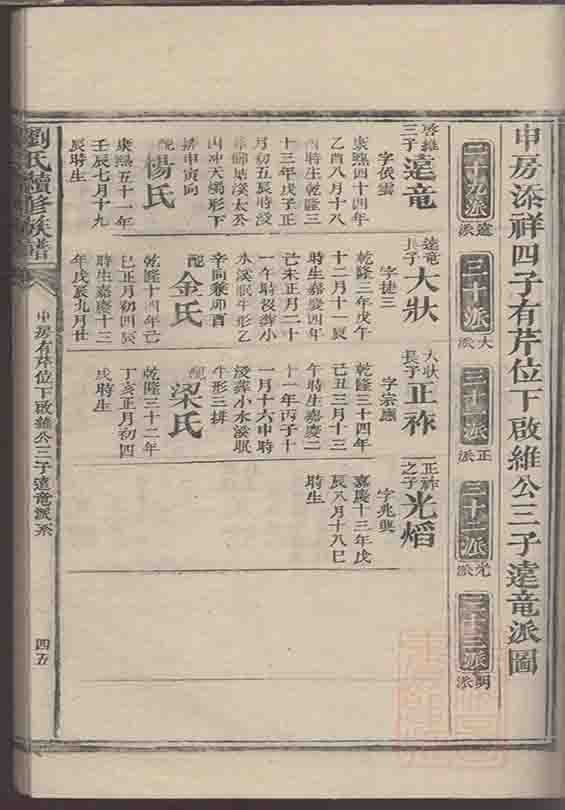 申房添祥四子有芹位下啟維公三子達竜派圖
二十九派 達派
三十派 大派
三十一派 正派
三十二派 光派
三十三派 明派
啓維三子
達竜
字依雲
康熙四十四年
乙酉八月十八
酉時生乾隆三
十三年戊子正
月初五辰時沒
塟歸塘溪太公
山冲天燭形下
排申寅向
配
楊氏
康熙五十一年
壬辰七月十九
辰時生
達竜長子
大狀
字捷三
乾隆三年戊午
十二月十一辰
時生嘉慶四年
己未正月二十
一午時沒塟小
水溪眠牛形乙
辛向兼卯酉
配
金氏
乾隆十四年己
巳正月初四寅
時生嘉慶十三
年戊辰九月廿
大狀長子
正祚
字宗應
乾隆三十四年
己丑三月十三
午時生嘉慶二
十一年丙子十
一月十六申時
沒塟小水溪眠
牛形三排
配
梁氏
乾隆三十二年
丁亥正月初四
戌時生
正祚之子
光熖
字兆興
嘉慶十三年戊
辰八月十八巳
時生
劉氏續修族譜
申房有芹位下啟維公三子達竜派系
四五